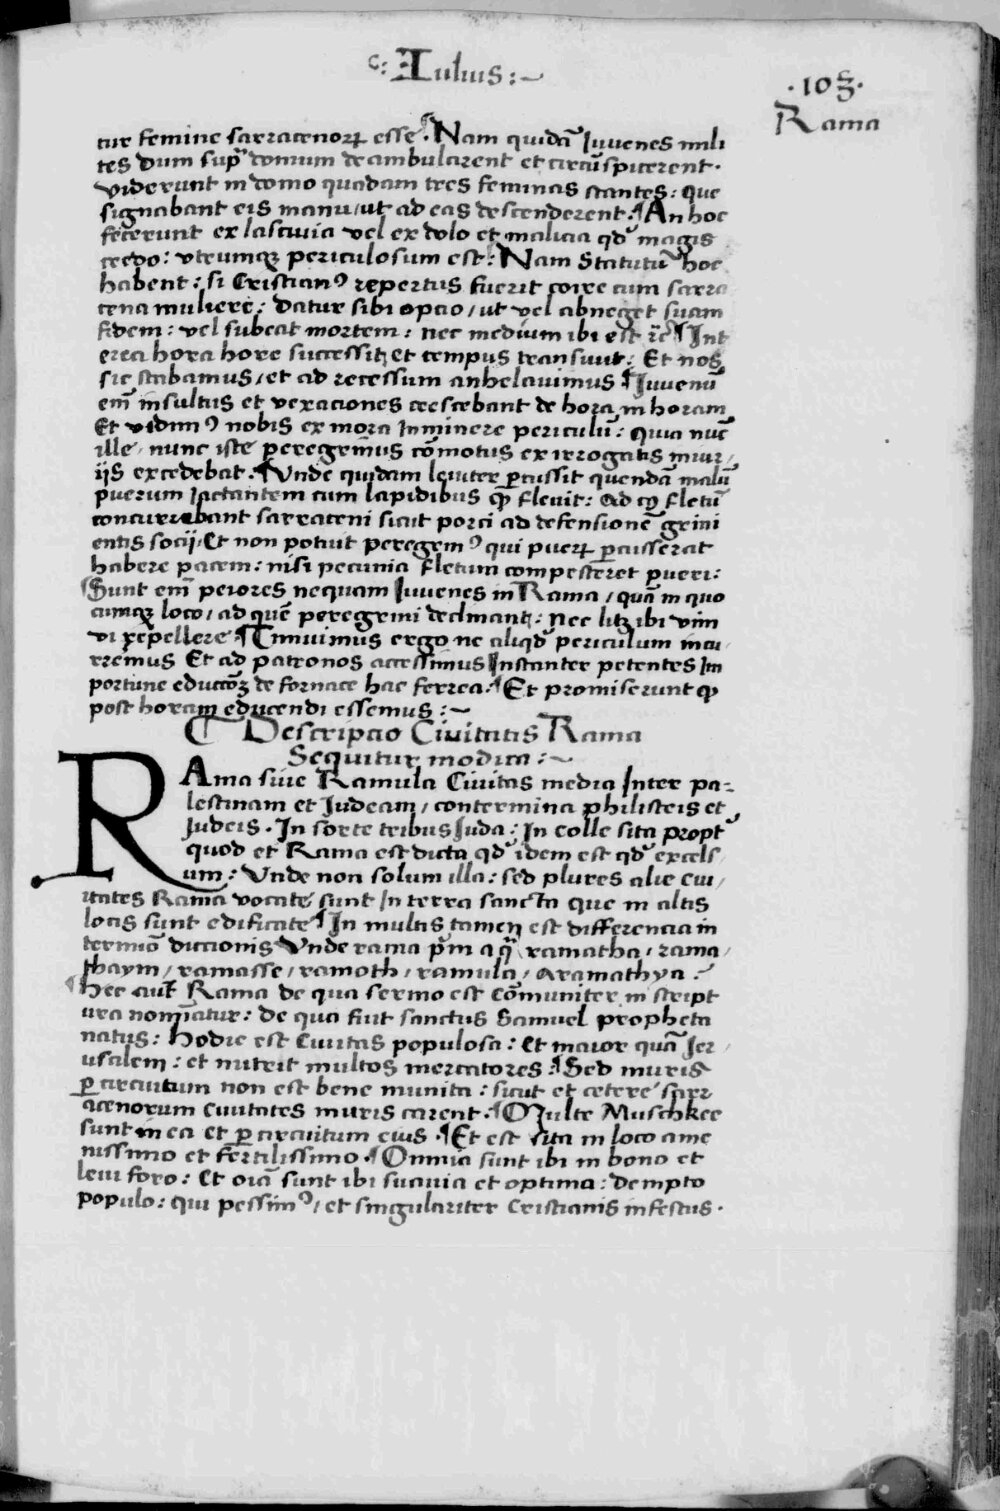 c: Iulius :~
·103·
Rama
tur femine sarracenorꝝ esse ·¶ Nam quidā Iuvenes mili
tes dum supͣ domum deambularent et circūspicerent ·
viderunt in domo quadam tres feminas stantes : que
signabant eis manu / ut ad eas descenderent ·¶ An hoc
fecerunt ex lascivia vel ex dolo et malicia qđ magis
credo : utrumqꝫ periculosum est ·¶ Nam Statutū hoc
habent : si Cristianꝰ repertus fuerit coire cum sarra
cena muliere : datur sibi optio / ut vel abneget suam
fidem : vel subeat mortem : nec medium ibi est rc̄ ¶ Int
erea hora hore successit et tempus transiuit : Et nos
sic stabamus / et ad recessum anhelauimus ¶ Iuvenū
em̄ insultus et vexaciones crescebant de hora in horam
Et vidimꝰ nobis ex mora Inminere periculū : Quia nūc
ille / nunc iste peregrinus cōmotus ex irrogatis iniur /
ijs excedebat ·¶ Unde quidam leuiter ꝑcussit quendā malū
puerum Iactantem cum lapidibus qꝫ fleuit : Ad cꝰ fletū
concurrebant sarraceni sicut porci ad defensionē grini
entis socij · Et non potuit peregrinꝰ qui puerꝝ ꝑcusserat
habere pacem : nisi pecunia fletum compesceret pueri :
¶ Sunt em̄ peiores nequam Iuvenes in Rama / quā in quo
cumqꝫ loco / ad quē peregrini declinant : nec litꝫ ibi vim
vi repellere ·¶ Timuimus ergo ne aliqđ periculum incu /
rremus Et ad patronos accessimus Instanter petentes Im
portune educcōꝫ de fornace hac ferrea ·¶ Et promiserunt qꝫ
post horam educendi essemus :~
¶ Descriptio Civitatis Rama
Sequitur modica :~
RAma siue Ramula Civitas media Inter pa-
lestinam et Iudeam / contermina philisteis et
Iudeis · In sorte tribus Iuda : In colle sita propt
quod et Rama est dicta qđ idem est qđ excels
um : Unde non solum illa : sed plures alie civi /
itates Rama vocate sunt In terra sancta que in altis
locis sunt edificate ¶ In multis tamen est differencia in
terminō diccionis Unde rama pm̄ a qͣ ramatha / rama /
thaym / ramasse / ramoth / ramula / aramathya :
¶ hec aut̄ Rama de qua sermo est Cōmuniter in script
ura nomīatur : de qua fuit sanctus Samuel propheta
natus : hodie est Civitas populosa : Et maior quā Ier /
usalem : et nutrit multos mercatores :¶ Sed muris
ꝑ circuitum non est bene munita : sicut et cetere sarr
acenorum Civitates muris carent ·¶ Multe Muschkee
sunt in ea et ꝑ circuitum eius ·¶ Et est sita in loco ame
nissimo et fertilissimo ·¶ Omnia sunt ibi in bono et
leui foro : Et oīa sunt ibi suavia et optima : dempto
populo : qui pessimꝰ / et singulariter Cristianis infestus ·